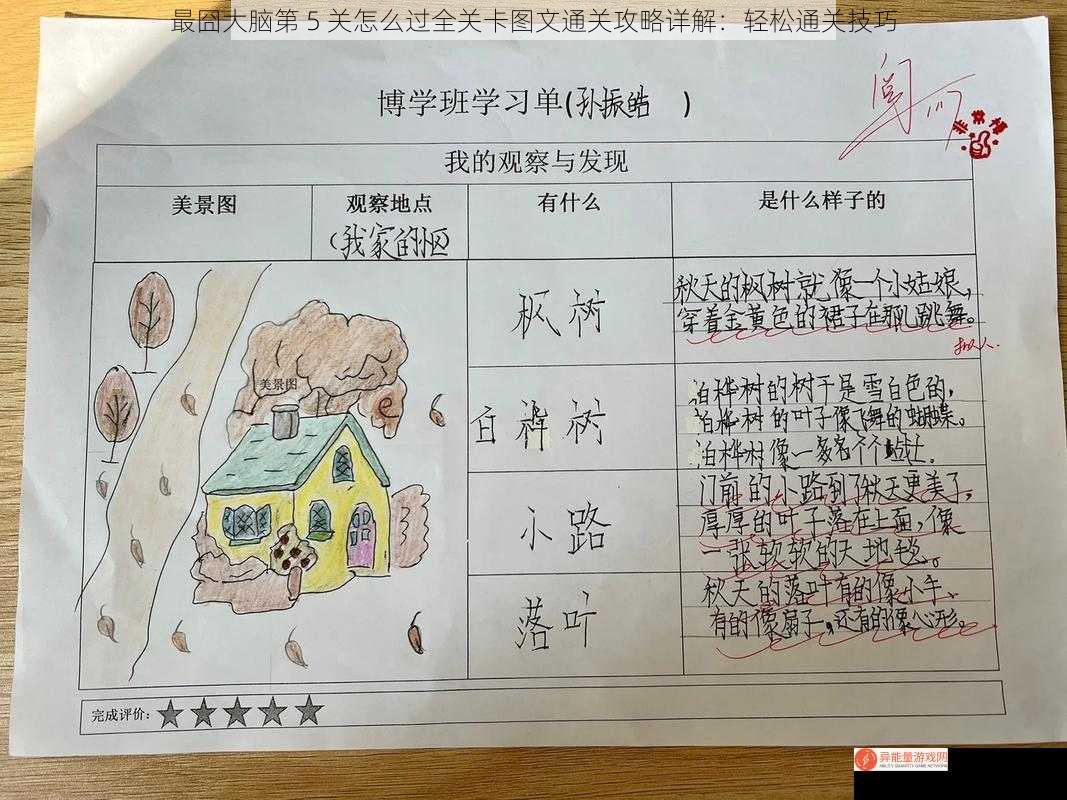 最囧大脑第 5 关怎么过全关卡图文通关攻略详解：轻松通关技巧
博学班学习单(孙振皓 )
阅
非常棒
我的观察与发现
美景图
观察地点
(我家的小区)
有什么
是什么样子的
美景图
枫树
秋天的枫树就像一个小姑娘，
穿着金黄色的裙子在那儿跳舞。
拟人.
白桦树
白桦树的树干是雪白色的，
白桦树的叶子像飞舞的蝴蝶。
白桦树像一
小路
门前的小路到了秋天更美了，
厚厚的叶子落在上面，像
一张软软的大地毯。
落叶
秋天的落叶有的像小牛、
有的像扇子，还有的像心形。
完成评价：
异能量游戏网
ABILITY QUANTITY GAME NETWORK